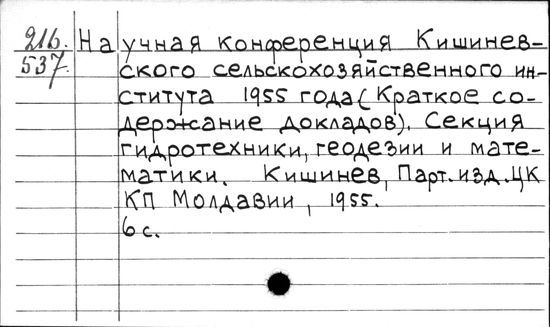 216.
537.
Научная конференция Кишинев-
ского сельскохозяйственного ин-
ститута 1955 года (Краткое со-
держание докладов). Секция
гидротехники, геодезии и мате-
матики. Кишинев, Парт. изд. ЦК
КП Молдавии, 1955.
6 с.